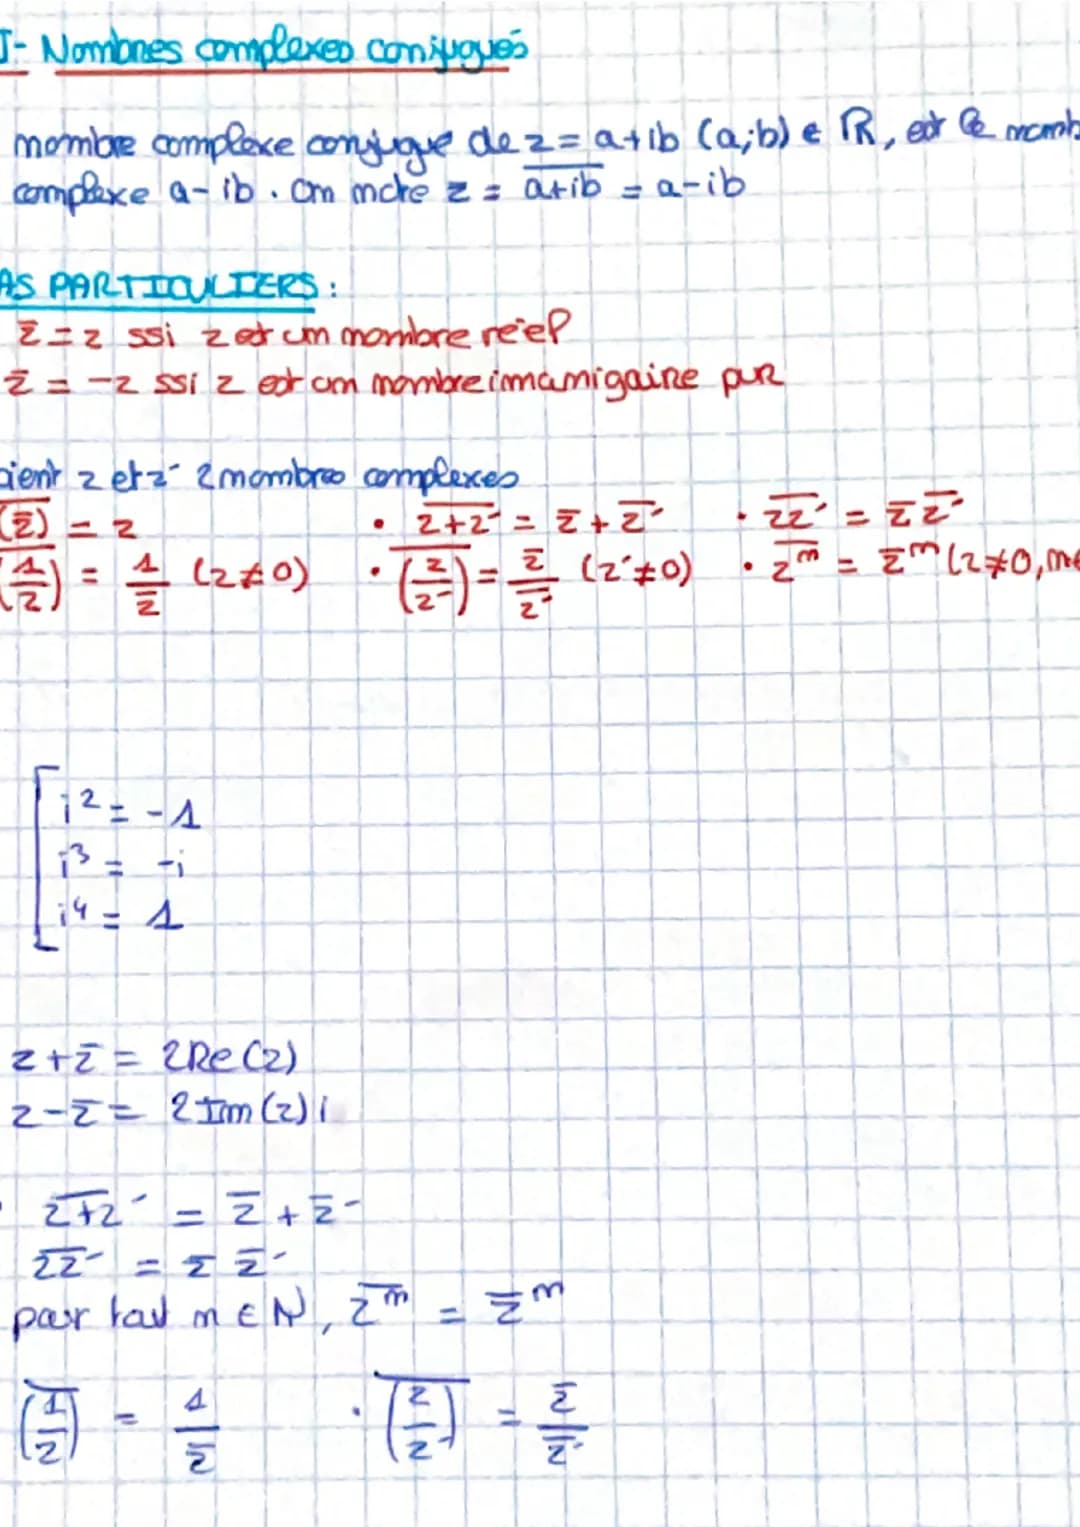 I- Nombres complexes conjugués
nombre complexe conjugue de z = a+ib (a;b) ∈ ℝ, est le nomb
complexe a-ib. On note z = \overline{a+ib} = a-ib
AS PARTICULIERS :
z̅ = z ssi z est un nombre réel
z̅ = -z ssi z est un nombre imamigaire pur
oient z et z' 2 nombres complexes
\overline{(z̅)} = z • \overline{z+z'} = z̅ + z̅' • \overline{zz'} = z̅ z̅'
\overline{(1/z)} = 1/z̅ (z≠0) • \overline{(z/z')} = z̅/z̅' (z'≠0) • \overline{z^n} = z̅^n (z≠0, n∈
i² = -1
i³ = -i
i⁴ = 1
z + z̅ = 2Re(z)
z - z̅ = 2Im(z)i
\overline{z+z'} = z̅ + z̅'
\overline{zz'} = z̅ z̅'
pour tout n ∈ N, \overline{z^n} = z̅^n
\overline{(1/z)} = 1/z̅ • \overline{(z/z')} = z̅/z̅'